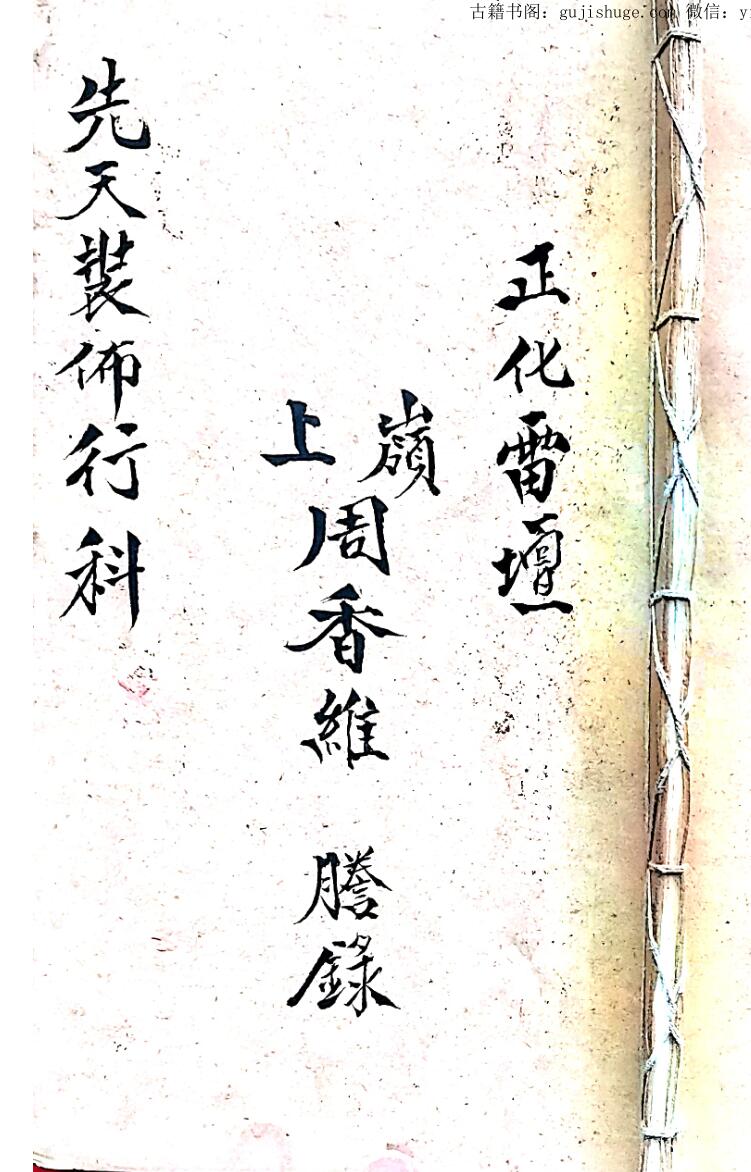 古籍书阁：gujishuge.com 微信：y
正化雷壇
嶺上
周香維 謄錄
先天裝佈行科